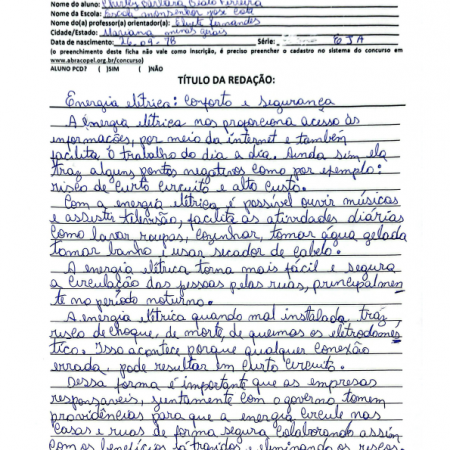 Nome do aluno: Shirley Bárbara Pereira
Nome da Escola: Escola monsenhor jose cota
Nome do(a) professor(a) ormador(a): Elizete fernandes
Cidade/Estado: Mariana minas gerais
Data de nascimento: 26.04.78 Série: EJA
(o preenchimento deste ficha não vale como inscrição, é preciso preencher o cadastro no sistema do concurso em
www.abracopel.org.br/concurso)
ALUNO PCD? ( )SIM ( )NÃO
TÍTULO DA REDAÇÃO:
Energia elítrica: Conforto e segurança
A Energia elítrica nos proporciona acesso às
informações, por meio da internet e também
facilita o trabalho do dia a dia. Ainda sim ela
traz alguns pontos negativos como por ejemplo:
risco de Curto circuito e alto custo.
Com a energia elítrica é possível ouvir músicas
e assistir televisão, facilita as atividades diárias
como lavar roupas, cozinhar, tomar água gelada
tomar banho e usar secador de cabelo.
A energia elítrica torna mais fácil e segura
a circulação das pessoas pelas ruas, principalmen
te no período noturno.
A energia elítrica quando mal instalada, traz
risco de choque, de morte, de queimar os eletrodomés
tico. Isso acontece porque qualquer conexão
errada, pode resultar em Curto Circuito.
Dessa forma é importante que as empresas
responsáveis, juntamente com o governo tomem
providências para que a energia circule nas
casas e ruas de forma segura Colaborando assim
com os benefícios só trazidos e eliminando os riscos.